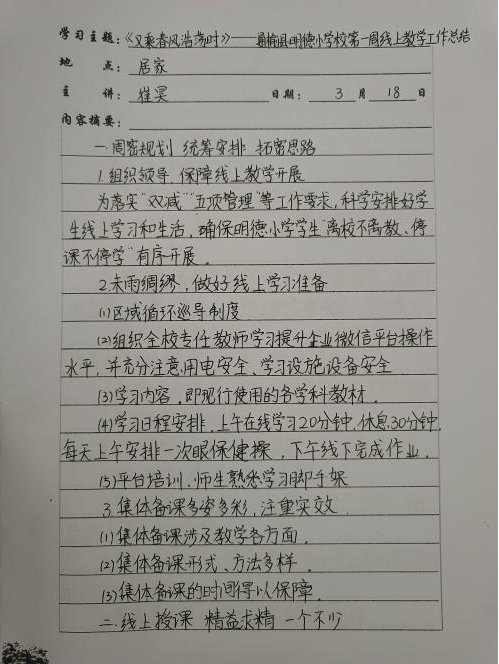 学习主题:《又乘春风浩荡时》——通榆县明德小学校第一周线上教学工作总结
地 点: 居家
主 讲: 崔昊 日期: 3 月 18 日
内容摘要:
一.周密规划 统筹安排 拓宽思路
1.组织领导,保障线上教学开展
为落实"双减""五项管理"等工作要求,科学安排好学
生线上学习和生活,确保明德小学学生"离校不离教、停
课不停学"有序开展。
2.未雨绸缪,做好线上学习准备
(1)区域循环巡导制度
(2)组织全校专任教师学习提升企业微信平台操作
水平,并充分注意用电安全、学习设施设备安全
(3)学习内容,即现行使用的各学科教材.
(4)学习日程安排,上午在线学习20分钟,休息30分钟,
每天上午安排一次眼保健操,下午线下完成作业.
(5)平台培训,师生熟悉学习脚手架
3.集体备课多姿多彩,注重实效
(1)集体备课涉及教学各方面.
(2)集体备课形式、方法多样.
(3)集体备课的时间得以保障.
二.线上授课 精益求精 一个不少